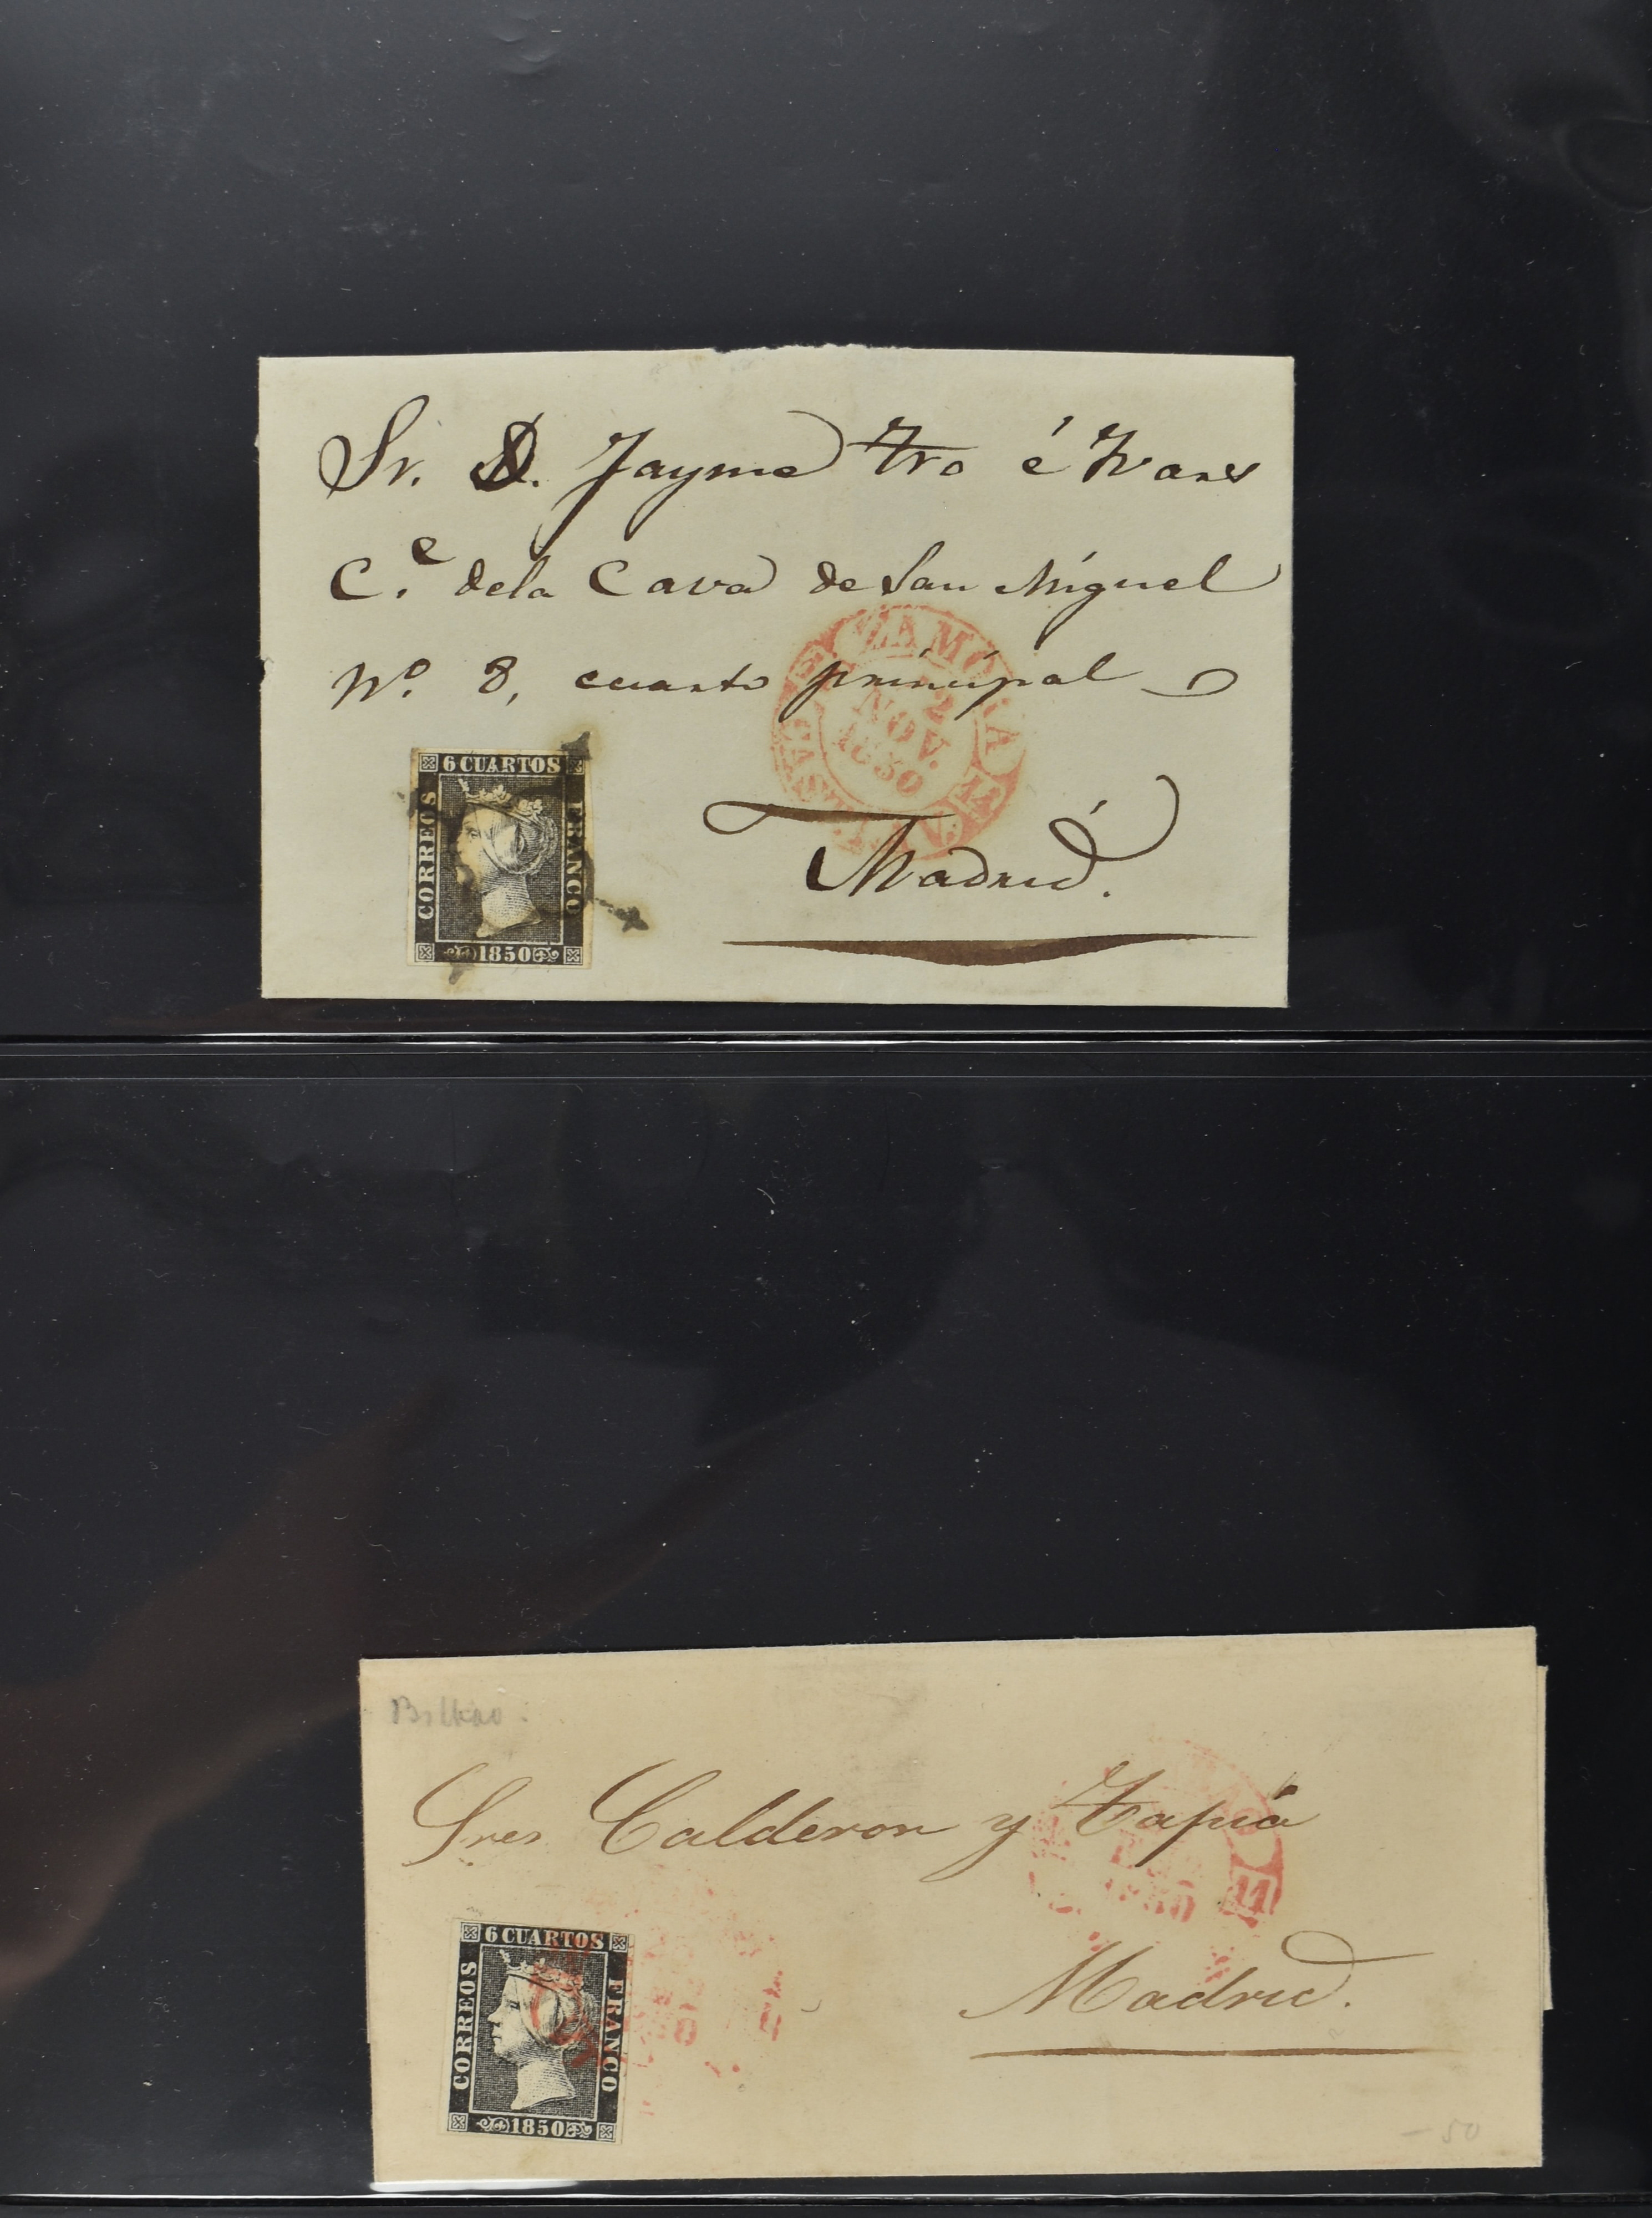 Sr. D. Jayme Tro é Ivars
C.e de la Cava de San Miguel
Nº. 8, cuarto principal
ZAMORA
2
NOV.
1850
Madrid.
6 CUARTOS
CORREOS
FRANCO
1850
Bilbao.
Sres Calderon y Tapia
1850
Madrid.
6 CUARTOS
CORREOS
FRANCO
1850
- 50